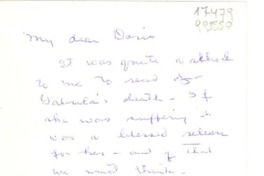 17479
My dear Doris
It was quite a shock
to me to read of
Gabriela's death - If
she was suffering it
was a blessed release
for her - and of that
we must think.